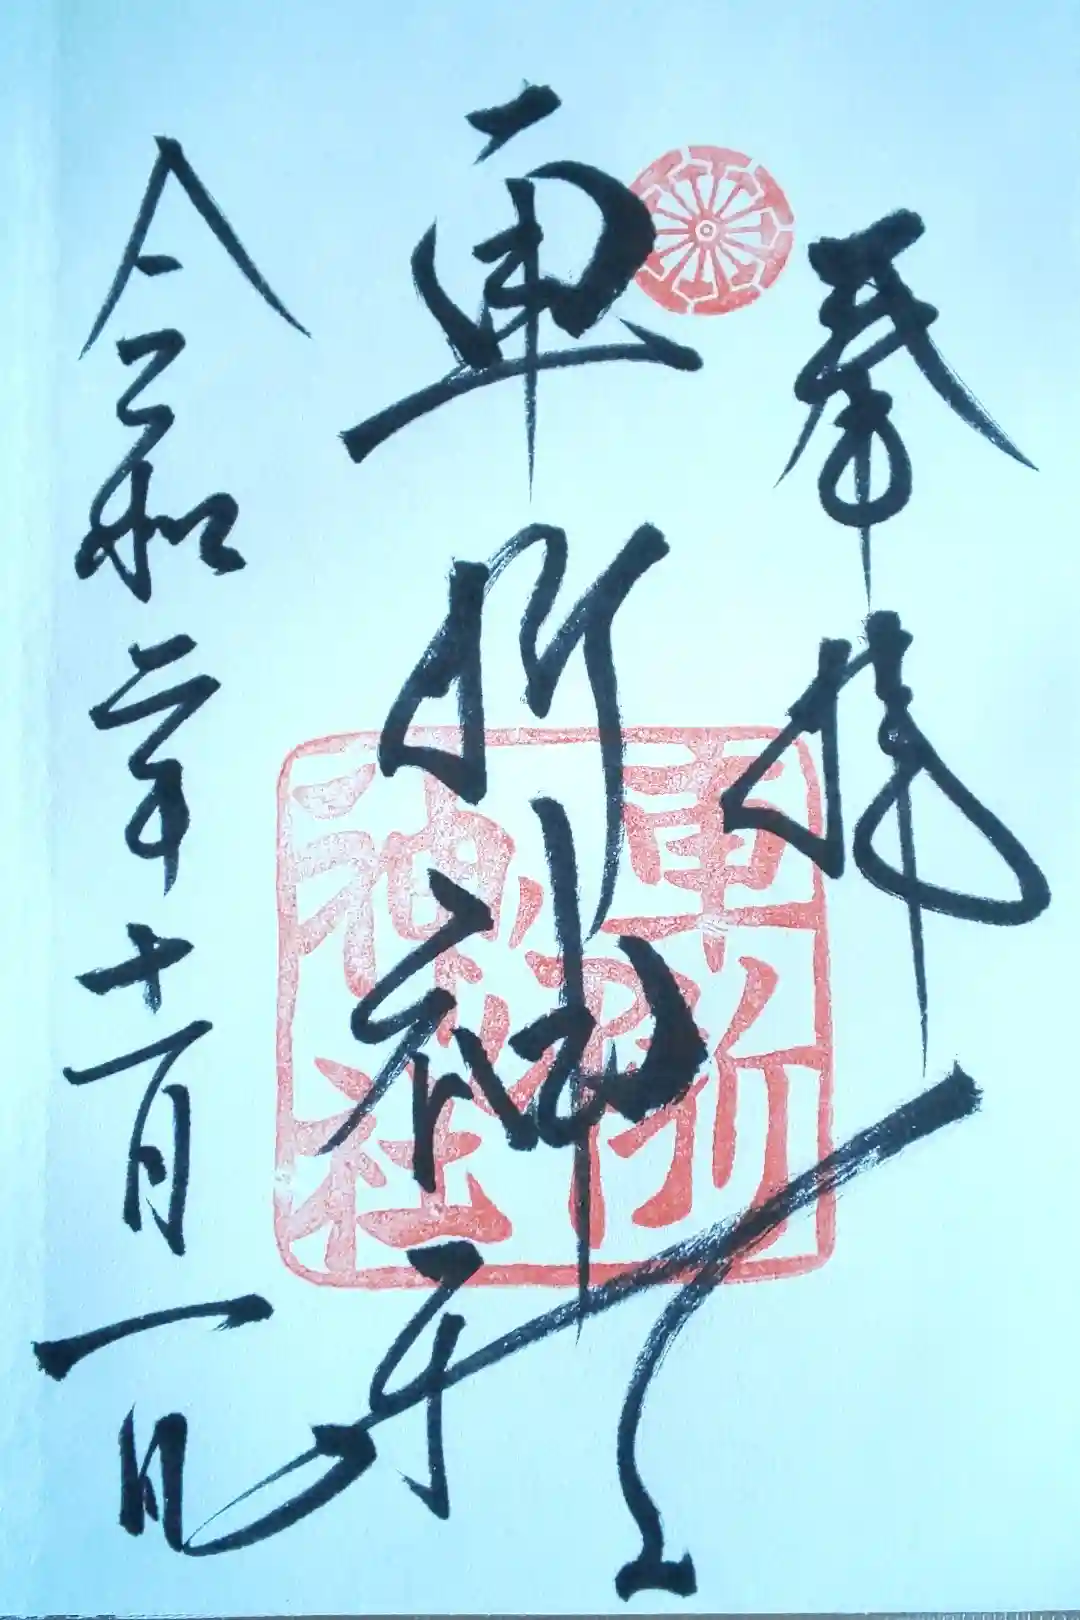 奉拝
車折神社
令和二年十一月一日
車折
神社